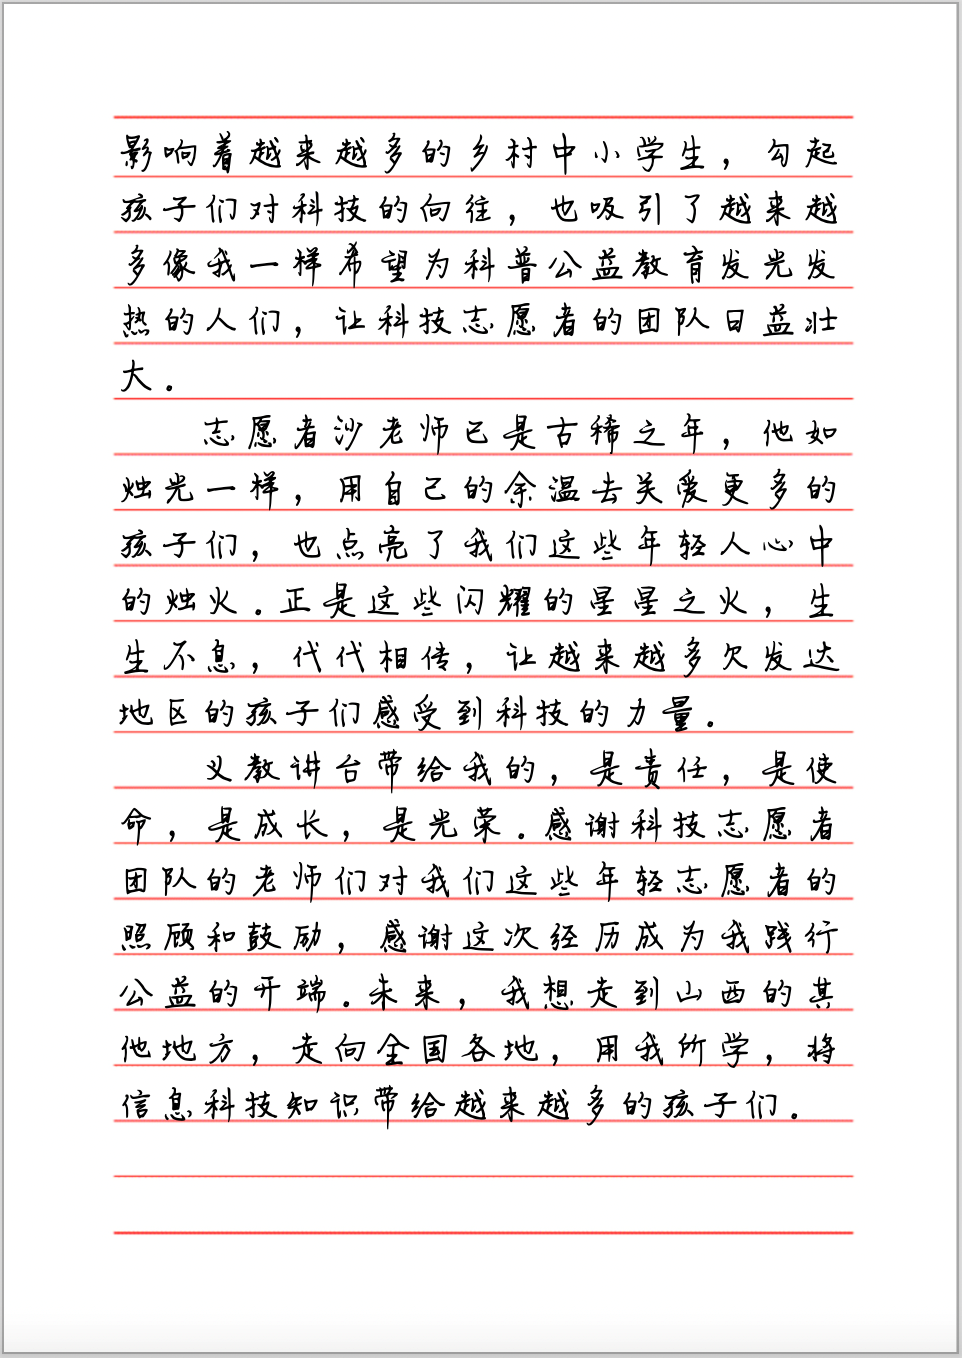 影响着越来越多的乡村中小学生，勾起
孩子们对科技的向往，也吸引了越来越
多像我一样希望为科普公益教育发光发
热的人们，让科技志愿者的团队日益壮
大．
志愿者沙老师已是古稀之年，他如
烛光一样，用自己的余温去关爱更多的
孩子们，也点亮了我们这些年轻人心中
的烛火．正是这些闪耀的星星之火，生
生不息，代代相传，让越来越多欠发达
地区的孩子们感受到科技的力量．
义教讲台带给我的，是责任，是使
命，是成长，是光荣．感谢科技志愿者
团队的老师们对我们这些年轻志愿者的
照顾和鼓励，感谢这次经历成为我践行
公益的开端．未来，我想走到山西的其
他地方，走向全国各地，用我所学，将
信息科技知识带给越来越多的孩子们．